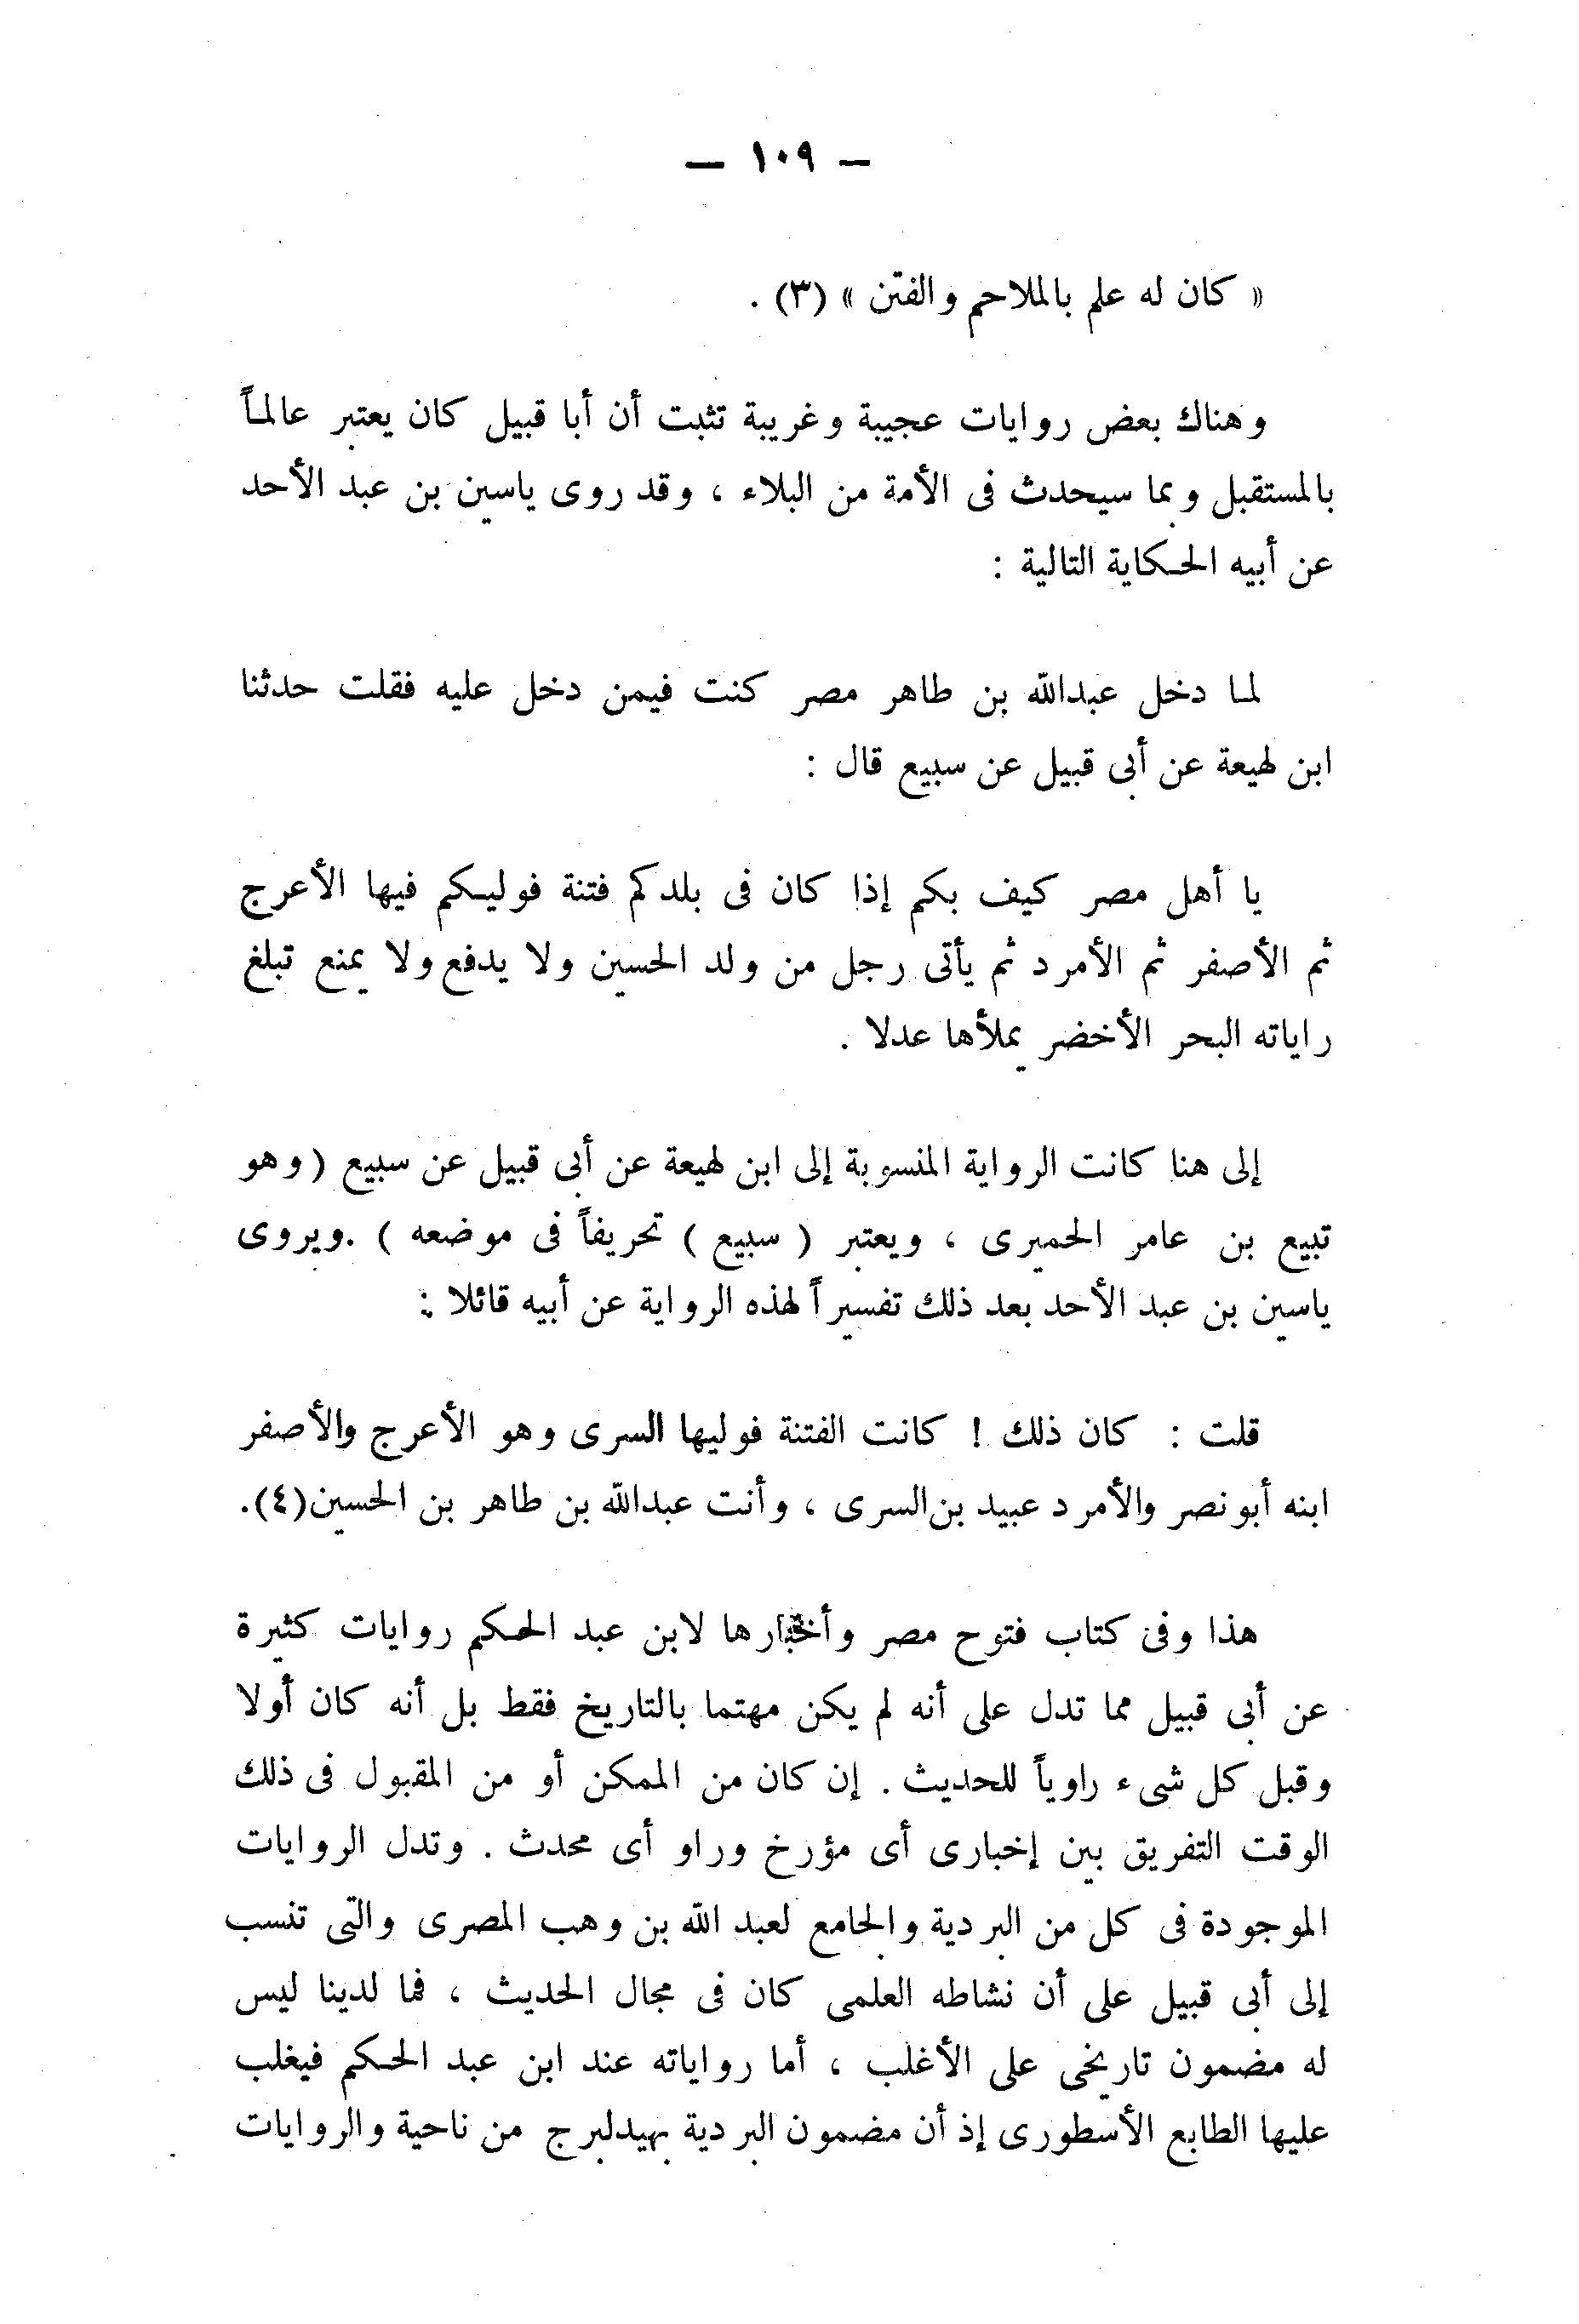 — ١٠٩ —
« كان له علم بالملاحم والفتن » (٣) .
وهناك بعض روايات عجيبة وغريبة تثبت أن أبا قبيل كان يعتبر عالمـاً
بالمستقبل وبما سيحدث فى الأمة من البلاء ، وقد روى ياسين بن عبد الأحد
عن أبيه الحكاية التالية :
لمـا دخل عبدالله بن طاهر مصر كنت فيمن دخل عليه فقلت حدثنا
ابن لهيعة عن أبى قبيل عن سبيع قال :
يا أهل مصر كيف بكم إذا كان فى بلدكم فتنة فوليكم فيها الأعرج
ثم الأصفر ثم الأمرد ثم يأتى رجل من ولد الحسين ولا يدفع ولا يمنع تبلغ
راياته البحر الأخضر يملأها عدلا .
إلى هنا كانت الرواية المنسوبة إلى ابن لهيعة عن أبى قبيل عن سبيع (وهو
تبيع بن عامر الحميرى ، ويعتبر ( سبيع ) تحريفاً فى موضعه ) .ويروى
ياسين بن عبد الأحد بعد ذلك تفسيراً لهذه الرواية عن أبيه قائلا :
قلت : كان ذلك ! كانت الفتنة فوليها السرى وهو الأعرج والأصفر
ابنه أبو نصر والأمرد عبيد بن السرى ، وأنت عبدالله بن طاهر بن الحسين(٤).
هذا وفى كتاب فتوح مصر وأخبارها لابن عبد الحكم روايات كثيرة
عن أبى قبيل مما تدل على أنه لم يكن مهتما بالتاريخ فقط بل أنه كان أولا
وقبل كل شىء راوياً للحديث . إن كان من الممكن أو من المقبول فى ذلك
الوقت التفريق بين إخبارى أى مؤرخ وراو أى محدث . وتدل الروايات
الموجودة فى كل من البردية والجامع لعبد الله بن وهب المصرى والتى تنسب
إلى أبى قبيل على أن نشاطه العلمى كان فى مجال الحديث ، فما لدينا ليس
له مضمون تاريخى على الأغلب ، أما رواياته عند ابن عبد الحكم فيغلب
عليها الطابع الأسطورى إذ أن مضمون البردية بهيدلبرج من ناحية والروايات